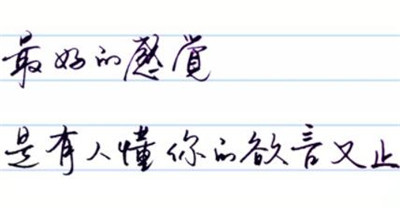 最好的感觉
是有人懂你的欲言又止